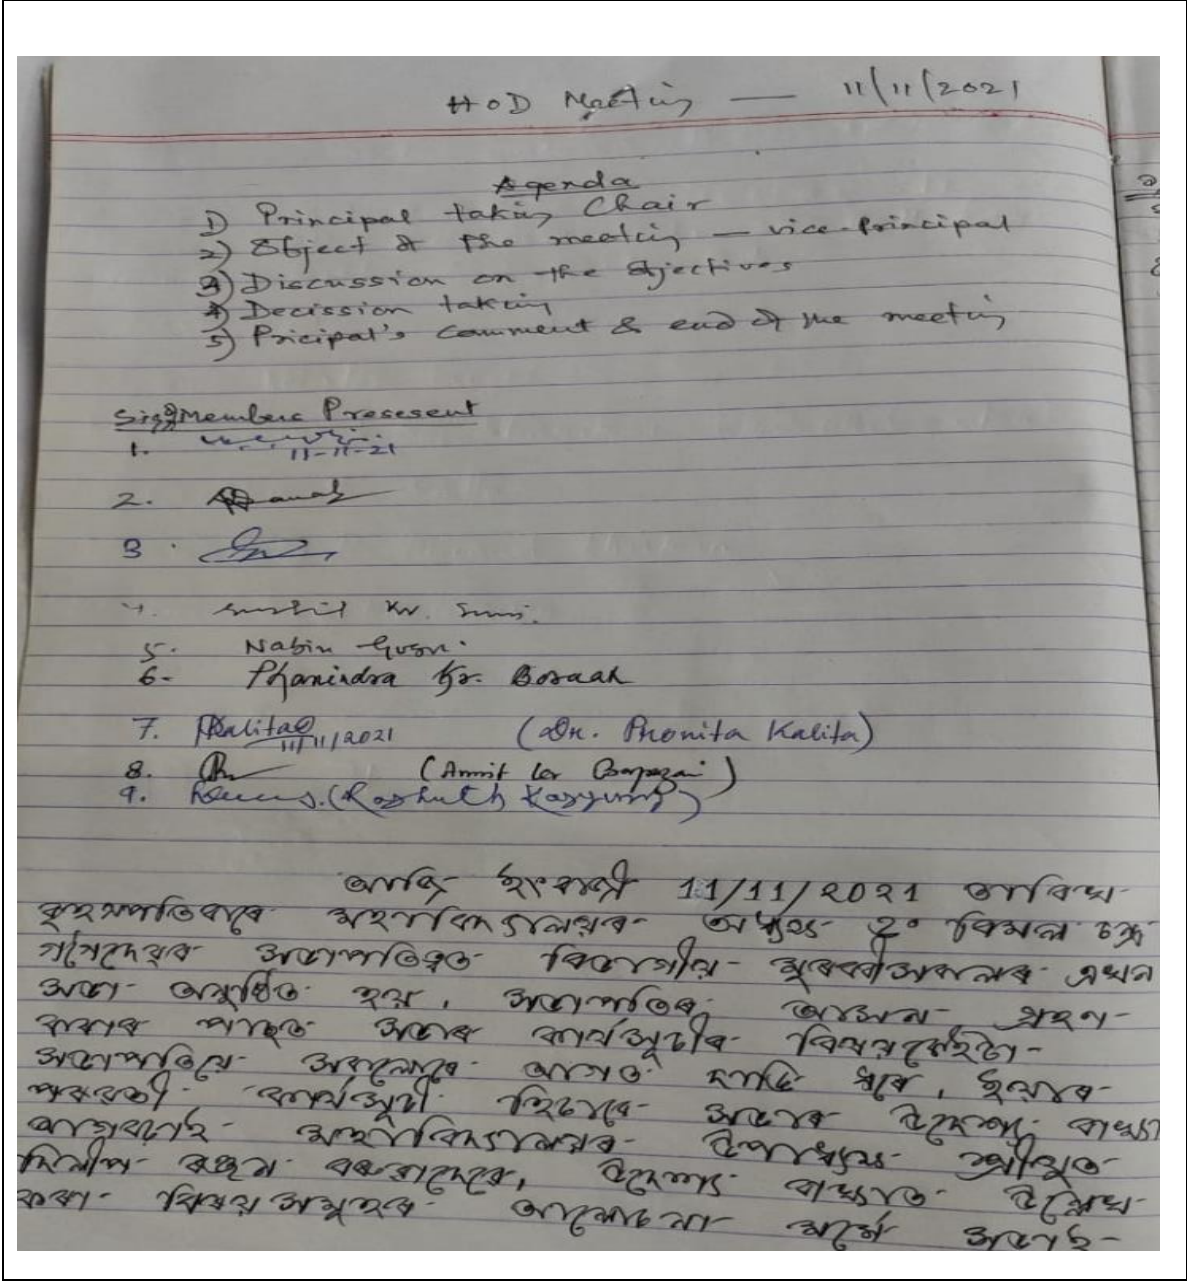 HOD Meeting — 11/11/2021
Agenda
1) Principal taking Chair
2) Object of the meeting — vice-principal
3) Discussion on the objectives
4) Decission taking
5) Pricipal's comment & end of the meeting
Members Presesent
1.
11-11-21
2.
3.
4. Kr.
5. Nabin
6- Phanindra Kr. Boraah
7. PKalita 11/11/2021 (Dr. Phonita Kalita)
8. (Amrit
9.
আজি ইংৰাজী 11/11/2021 তাৰিখ
বৃহস্পতিবাৰে মহাবিদ্যালয়ৰ অধ্যক্ষ ড° বিমল চন্দ্ৰ
গগৈদেৱৰ সভাপতিত্বত বিভাগীয় মুৰব্বীসকলৰ এখন
সভা অনুষ্ঠিত হয়। সভাপতিৰ আসন গ্ৰহণ
কৰাৰ পাছত সভাৰ কাৰ্যসূচীৰ বিষয়কেইটা
সভাপতিয়ে সকলোৰে আগত দাঙি ধৰে। ইয়াৰ
পৰৱৰ্তী কাৰ্যসূচী হিচাবে সভাৰ উদ্দেশ্য ব্যাখ্যা
আগবঢ়ায় মহাবিদ্যালয়ৰ উপাধ্যক্ষ শ্ৰীযুত
দিলীপ ৰঞ্জন বৰুৱাদেৱে। উদ্দেশ্য ব্যাখ্যাত উল্লেখ
কৰা বিষয়সমূহৰ আলোচনা মৰ্মে সভাই